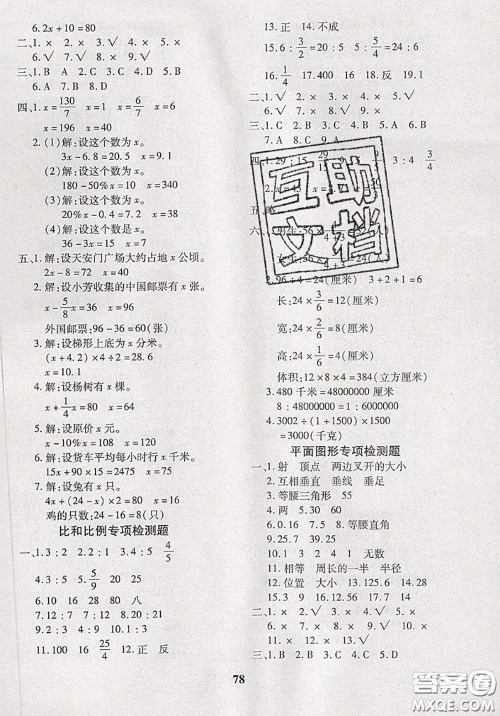 6.2x+10=80
二、1.× 2.× 3.√ 4.√ 5.×
6.× 7.√ 8.√ 9.√ 10.×
三、1.B A 2.C 3.A 4.D
5.B 6.C 7.C 8.B 9.D
四、1.x=130/7 x=1 x=6/7 x=6
x=196 x=40
2.(1)解:设这个数为x。
3x-6.8=20.5 x=9.1
(2)解:设这个数为x。
180-50%x=10 x=340
(3)解:设这个数为x。
20%x-4=0.4 x=22
五、1.解:设天安门广场大约占地x公顷。
2x-8=72 x=40
2.解:设小芳收集的中国邮票有x张。
x-5/8x=36 x=96
外国邮票:96-36=60(张)
3.解:设梯形上底为x分米。
(x+4.2)×4÷2=30
x=10.8
4.解:设杨树有x棵。
x+1/4x=80 x=64
5.解:设原价x元。
x-10%x=108 x=120
6.解:设货车平均每小时行x千米。
15x+90×15=2475 x=75
7.解:设兔有x只。
4x+(24-x)×2=64 x=8
鸡的只数:24-8=16(只)
比和比例专项检测题
一、1.3:2 2.1:5 3.4:5 4/5
4.3:5 5.5/9 20 35
6.10 16 28 80 八
7.12:7 7:12 8.20:21
9.2:1 10.3:2
11.100 16 25/4 12.正 反
13.正 14.不成
15.6:5=30:25 5/6=25/30
16.1/4 17.400 18.反 19.1
二、1.√ 2.√ 3.× 4.√ 5.√
6.× 7.√
三、1.B 2.B 3.C 4.B 5.C 6.B
7.A 8.C 9.D
四、1.29:15
3:4 3/4
五、略
3+2+1=6
长:24×3/6=12(厘米)
宽:24×2/6=8(厘米)
高:24×1/6=4(厘米)
体积:12×8×4=384(立方厘米)
3.480千米=48000000厘米
8:48000000=1:6000000
4.3002÷(1500+1)×1500
=3000(千克)
平面图形专项检测题
一、1.射 顶点 两边叉开的大小
2.互相垂直 垂线 垂足
3.等腰三角形 55
4.两 5.20 50
6.0.15 7.6.5 8.等腰直角
9.1 3 2 4 1 无数
11.相等 周长的一半 半径
12.位置 大小 13.125.6 14.28
15.25.12
二、1.× 2.× 3.× 4.√ 5.×
6.×
三、1.C 2.C 3.B 4.D 5.C
78
互助
文档
答案圈
MXQE.COM